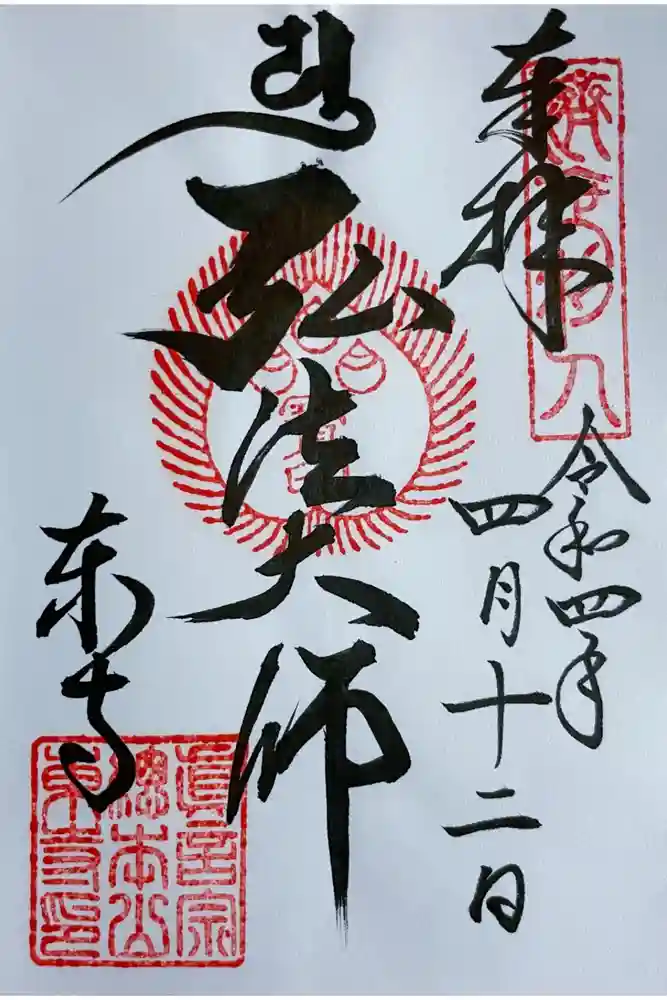 奉拝
令和四年
四月十二日
弘法大師
東寺
眞言宗
總本山
東寺印